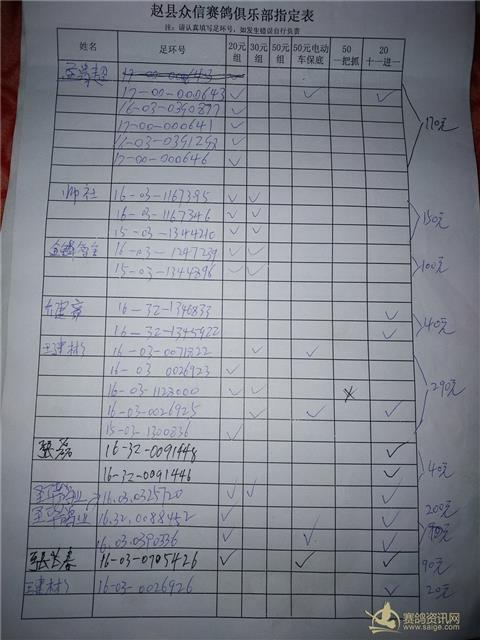 赵县众信赛鸽俱乐部指定表
注：请认真填写足环号，如发生错误自行负责
姓名 足环号 20元组 30元组 50元组 50元电动车保底 50一把抓 20十一进一
17-00-000643
16-03-0390877
17-00-000641
16-03-0391298
17-00-000646
170元
帅社 16-03-1167395
16-03-1167346
15-03-1344210
150元
16-03-1247239
15-03-1344896
100元
16-32-1346833
16-32-1345922
40元
王建彬 16-03-0071822
16-03 0026923
16-03-1128000
16-03-0026925
15-03-1300836
290元
16-32-0091448
16-32-0091446
40元
16.03.0325720
16.32.0088452
200元
16.03.0390336
16-03-0705426
90元
王建彬 16-03-0026926
20元
赛鸽资讯网
www.saige.com